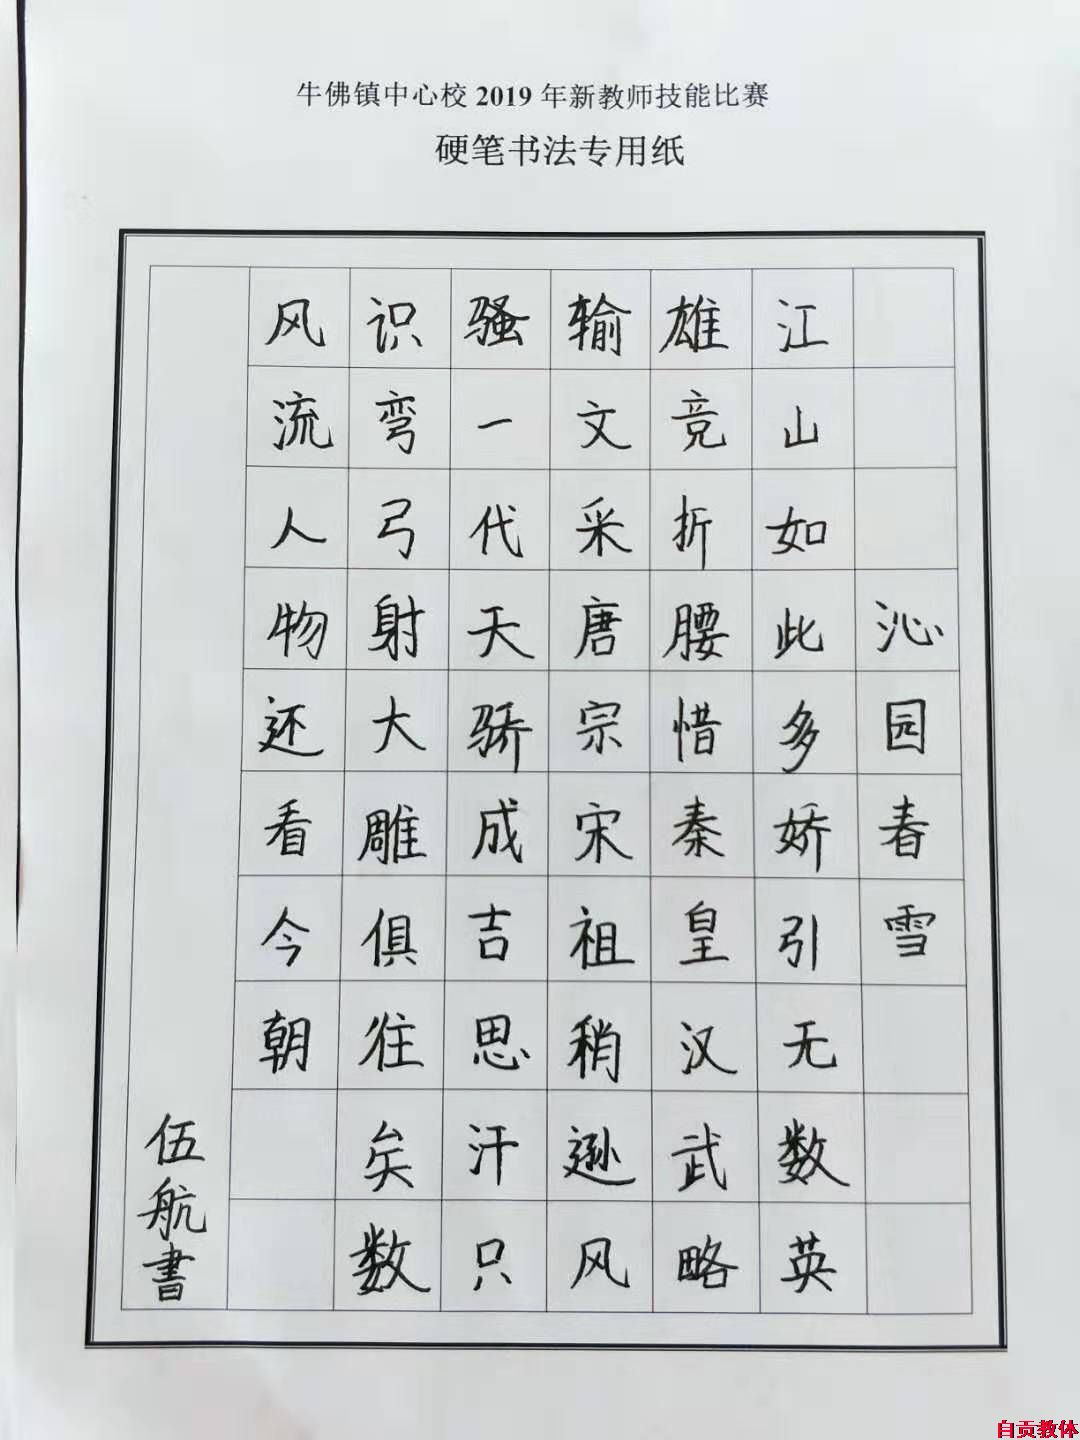 牛佛镇中心校 2019 年新教师技能比赛
硬笔书法专用纸
沁园春雪
江山如此多娇引无数英
雄竞折腰惜秦皇汉武略
输文采唐宗宋祖稍逊风
骚一代天骄成吉思汗只
识弯弓射大雕俱往矣数
风流人物还看今朝
伍航書
自贡教体